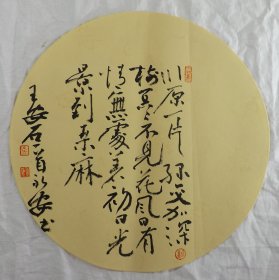 川原一片绿交加深
树冥冥不见花风日有
情無處着初回光
景到桑麻
王安石一首永安书